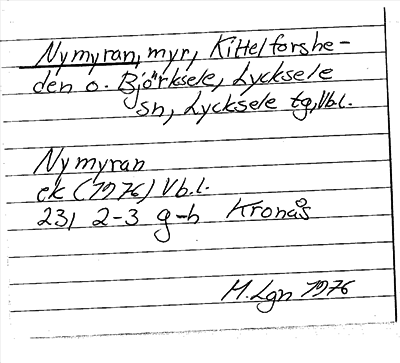 Nymyran, myr, Kittelforshe-
den o. Björksele, Lycksele
sn, Lycksele tg, Vbl.
Nymyran
ek (1976) Vb.l.
231 2-3 g-h Kronås
M.Lgn 1976